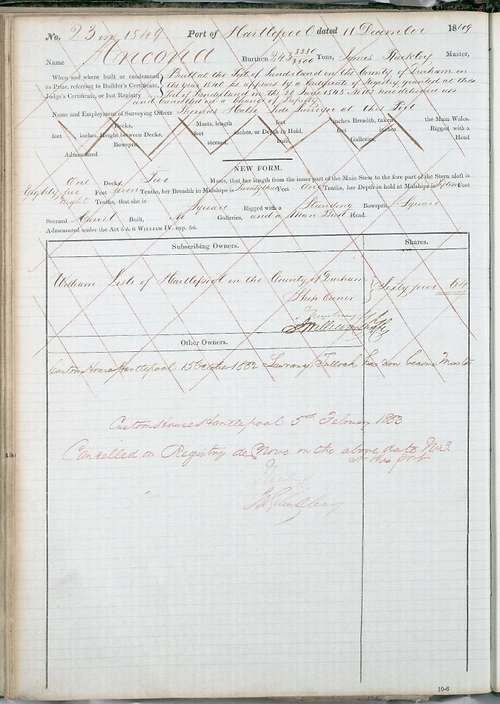 No. 23 in 1849 Port of Hartlepool dated 11 December 1849
Name Ancona Burthen 243 Tons, James Master,
When and where built or condemned as Prize, referring to Builder's Certificate, Judge's Certificate, or last Registry
Built at the Port of Sunderland in the County of Durham in
the year 1845 as appears by a Certificate of Registry granted at the
Port of Sunderland on the 30 June 1845 No. delivered up
and Cancelled on a Change of Property
Name and Employment of Surveying Officer Thomas Tide Surveyor at this Port
Decks, Masts, length feet inches, Breadth, taken the Main Wales
feet inches, Height between Decks, feet inches, or Depth in Hold. Rigged with a
Bowsprit, sterned, Built, Galleries, Head.
Admeasured
NEW FORM.
One Deck Two Masts, that her length from the inner part of the Main Stem to the fore part of the Stern aloft is
Eighty five Feet seven Tenths, her Breadth in Midships is Feet One Tenths, her Depth in hold at Midships is Feet
Eight Tenths, that she is Square Rigged with a Standing Bowsprit, Square
Sterned Carvel Built, No Galleries, and a Man Bust Head.
Admeasured under the Act 5 & 6 WILLIAM IV. cap. 56.
Subscribing Owners. Shares.
William Lisle of Hartlepool in the County of Durham
Ship Owner Sixty four 64
Other Owners.
Custom House Hartlepool 15 October 1852
Custom House Hartlepool 5th February 1853
Cancelled on Registry de Novo on the above date No. 3
in this port
19-6